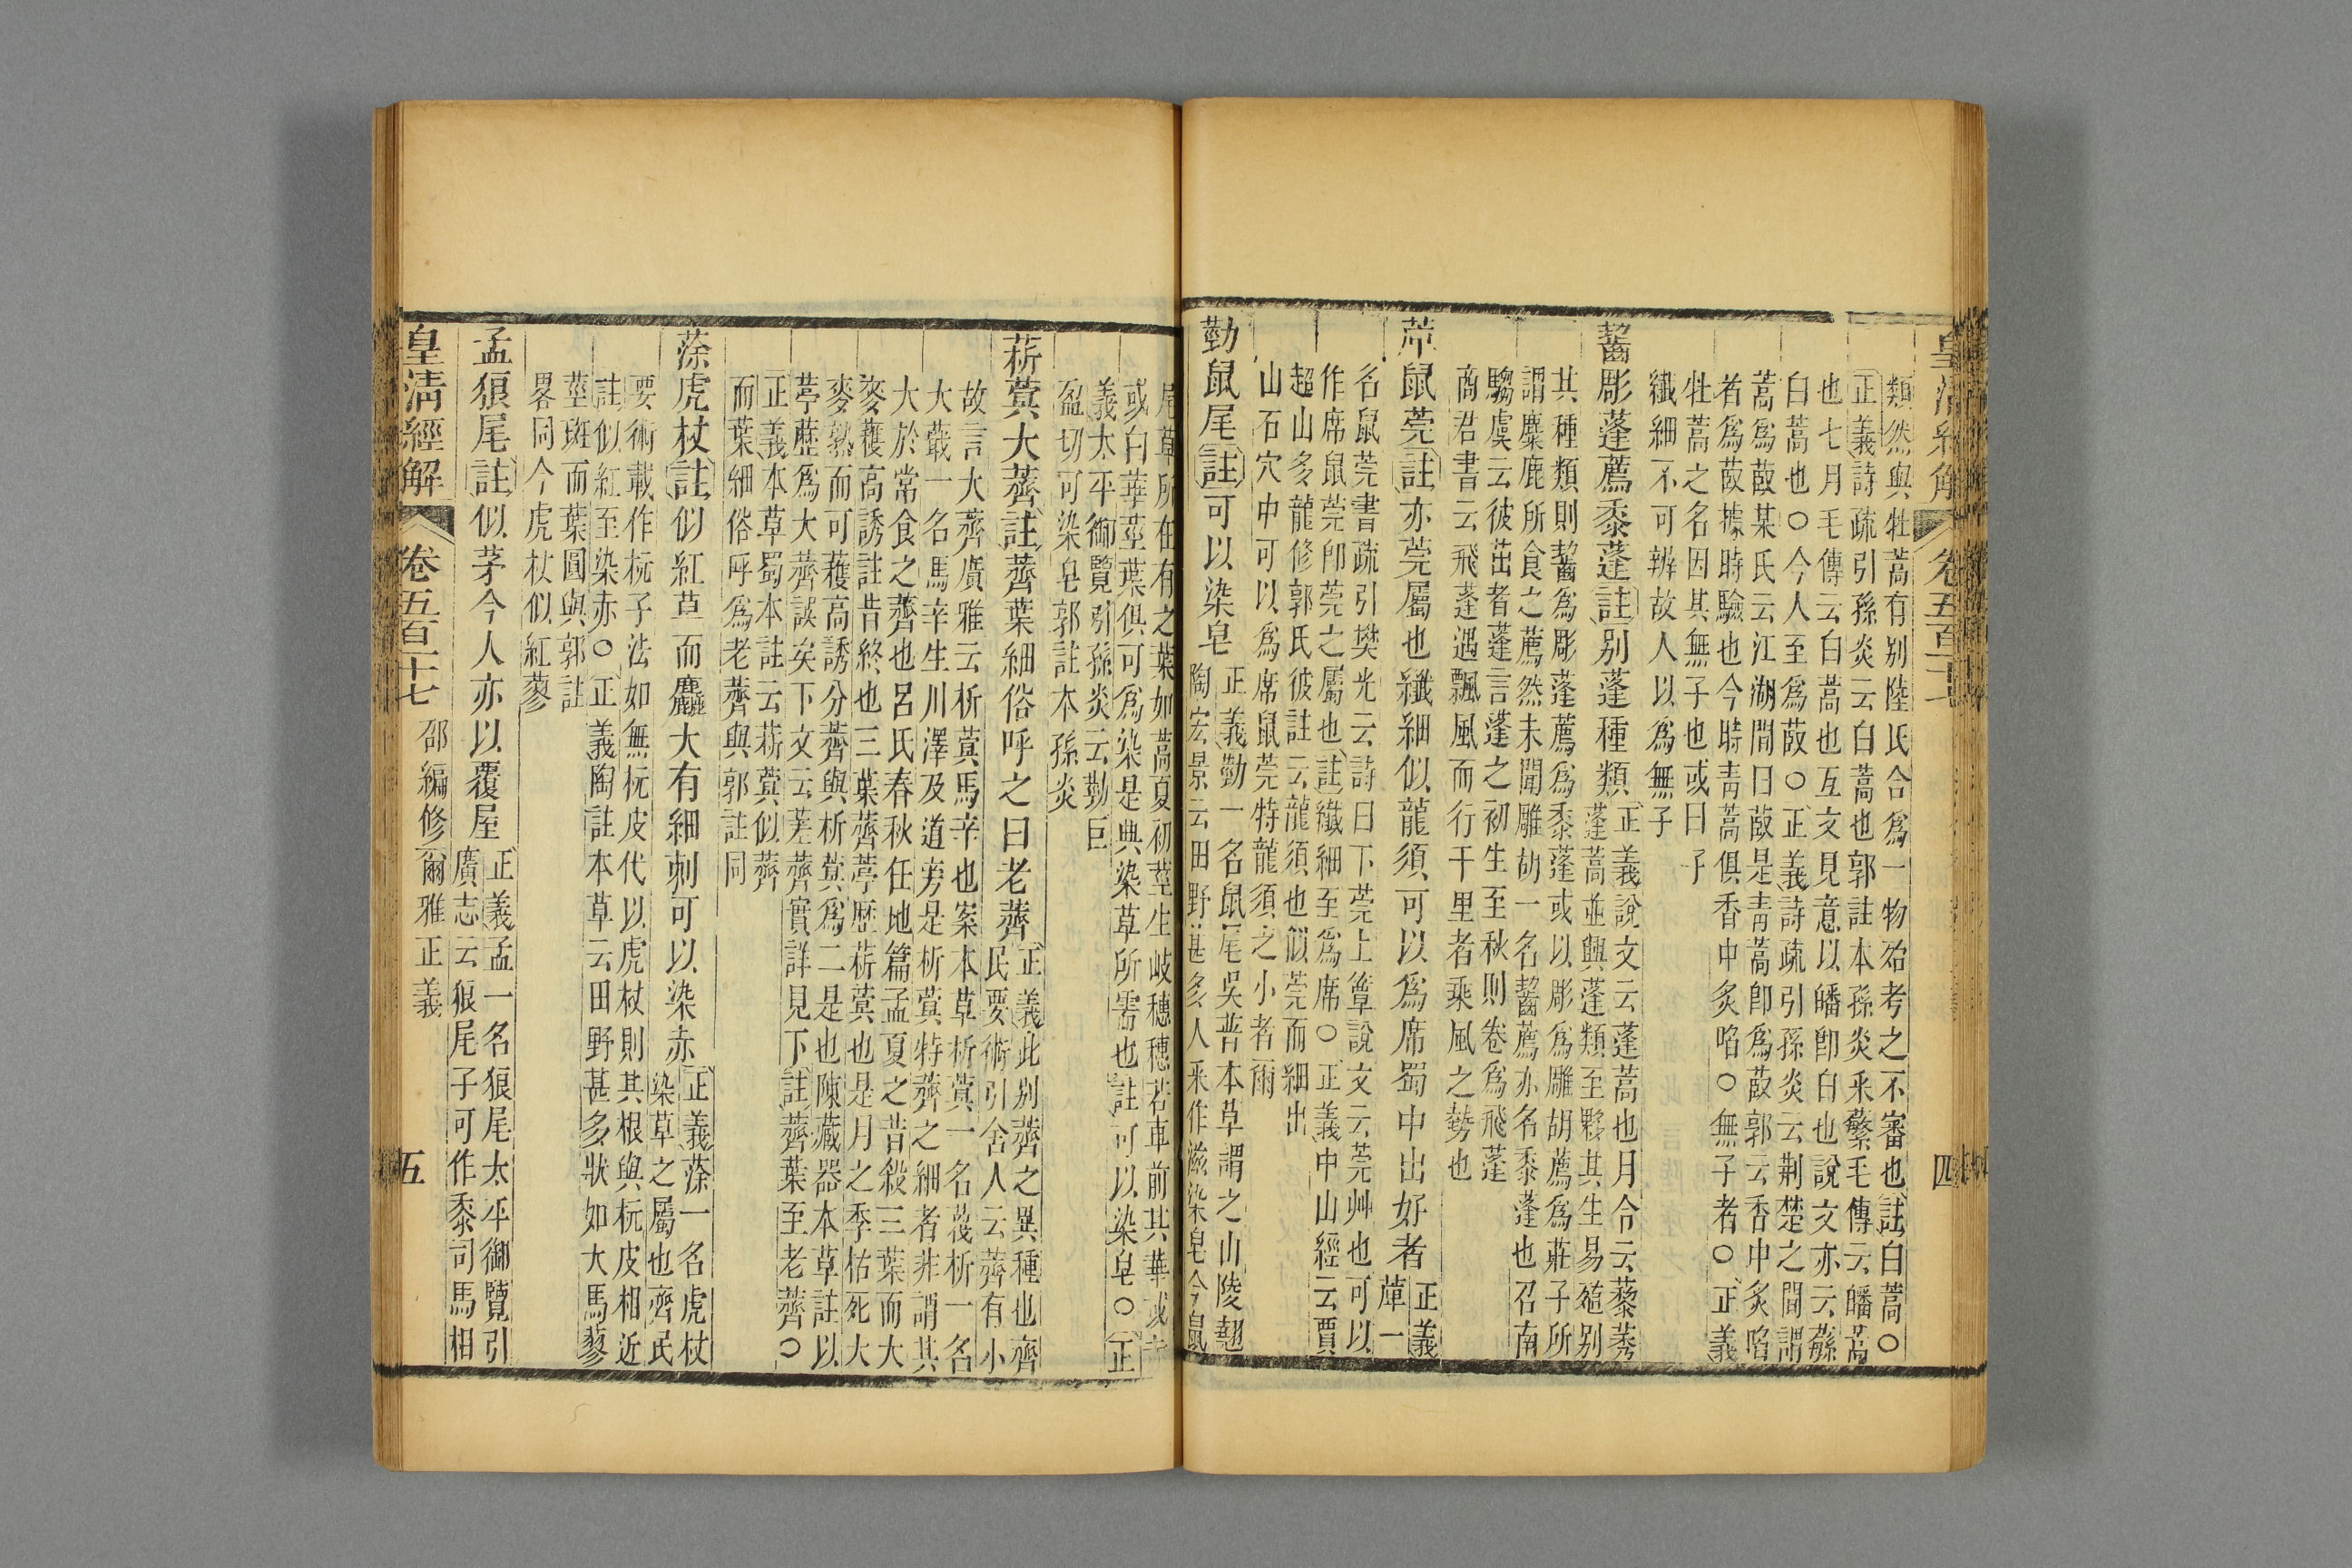 皇清經解 卷五百一十七 四
類然與牡蒿有别陸氏合爲一物殆考之不審也註白蒿○
正義詩疏引孫炎云白蒿也郭註本孫炎采蘩毛傳云皤蒿
也七月毛傳云白蒿也互文見意以皤卽白也說文亦云蘇
白蒿也○今人至爲菣○正義詩疏引孫炎云荆楚之間謂
蒿爲菣某氏云江湖間曰菣是青蒿卽爲菣郭云香中炙啗
者爲菣據時驗也今時青蒿俱香中炙啗○無子者○正義
牡蒿之名因其無子也或曰子
纖細不可辨故人以爲無子
齧彫蓬薦黍蓬註别蓬種類正義說文云蓬蒿也月令云藜莠
蓬蒿並興蓬類至夥其生易殖别
其種類則齧爲彫蓬薦爲黍蓬或以彫爲雕胡薦爲莊子所
謂麋鹿所食之薦然未聞雕胡一名齧薦亦名黍蓬也召南
騶虞云彼茁者蓬言蓬之初生至秋則卷爲飛蓬
商君書云飛蓬遇飄風而行千里者乘風之勢也
萆鼠莞註亦莞屬也纖細似龍須可以爲席蜀中出好者正義
萆一
名鼠莞書疏引樊光云詩曰下莞上簟說文云莞艸也可以
作席鼠莞卽莞之屬也註纖細至爲席○正義中山經云賈
超山多龍修郭氏彼註云龍須也似莞而細出
山石穴中可以爲席鼠莞特龍須之小者爾
葝鼠尾註可以染皂正義葝一名鼠尾吳普本草謂之山陵翹
陶宏景云田野甚多人采作滋染皂今鼠
尾草所在有之葉如蒿夏初莖生岐穗穗若車前其華或
或白華莖葉俱可爲染是典染草所需也註可以染皂○正
義太平御覽引孫炎云葝巨
盈切可染皂郭註本孫炎
菥蓂大薺註薺葉細俗呼之曰老薺正義此别薺之異種也齊
民要術引舍人云薺有小
故言大薺廣雅云析蓂馬辛也案本草析蓂一名蔑析一名
大蕺一名馬辛生川澤及道旁是析蓂特薺之細者非謂其
大於常食之薺也呂氏春秋任地篇孟夏之昔殺三葉而大
麥穫高誘註昔終也三葉薺葶歷菥蓂也是月之季枯死大
麥熟而可穫高誘分薺與析蓂爲二是也陳藏器本草註以
葶藶爲大薺誤矣下文云蒫薺實詳見下註薺葉至老薺○
正義本草蜀本註云菥蓂似薺
而葉細俗呼爲老薺與郭註同
蒤虎杖註似紅草而麤大有細刺可以染赤正義蒤一名虎杖
染草之屬也齊民
要術載作杬子法如無杬皮代以虎杖則其根與杬皮相近
註似紅至染赤○正義陶註本草云田野甚多狀如大馬蓼
莖斑而葉圓與郭註
畧同今虎杖似紅蓼
孟狼尾註似茅今人亦以覆屋正義孟一名狼尾太平御覽引
廣志云狼尾子可作黍司馬相
皇清經解 卷五百一十七 邵編修爾雅正義 五